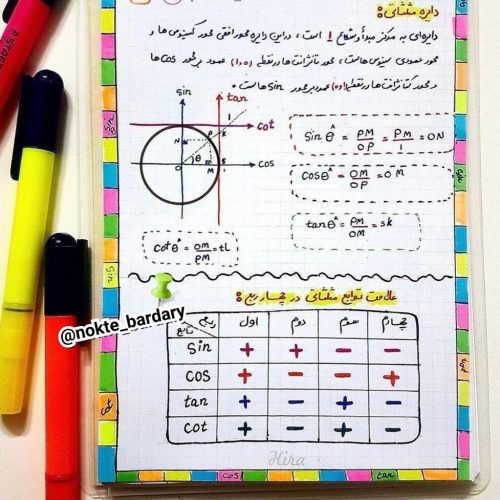 دایره مثلثاتی:
دایره‌ای به مرکز مبدأ و شعاع 1 است، در این دایره محور افقی محور کسینوس ها و
محور عمودی سینوس هاست، محور تانژانت ها در نقطه (1,0) عمود بر محور cos ها
و محور کتانژانت ها در نقطه (0,1) عمود بر محور sin ها است.
sin
tan
cot
cos
N
P
K
L
θ
O
M
S
sin θ^ = PM/OP = PM/1 = ON
cos θ^ = OM/OP = OM
tan θ^ = PM/OM = SK
cot θ^ = OM/PM = tL
علامت توابع مثلثاتی در چهار ربع:
ربع تابع اول دوم سوم چهارم
sin + + − −
cos + − − +
tan + − + −
cot + − + −
@nokte_bardary
Hira
STAEDTLER
cot
sin
cos
tan